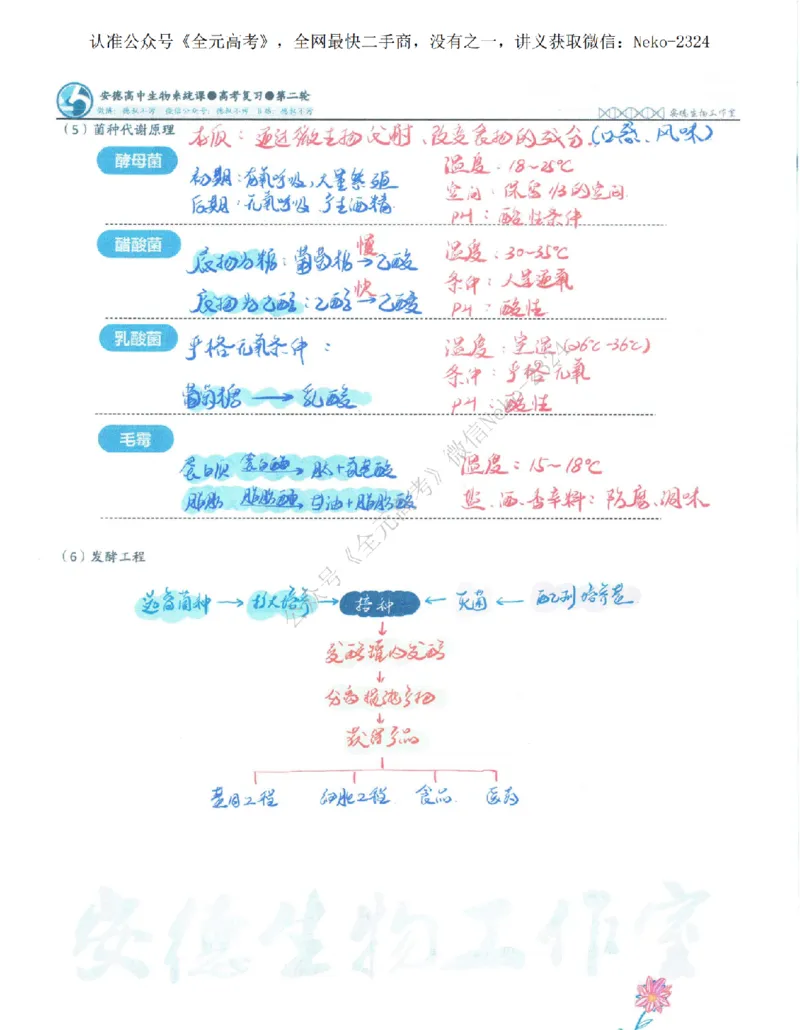 认准公众号《全元高考》，全网最快二手商，没有之一，讲义获取微信：Neko-2324
安德高中生物系统课●高考复习●第二轮
安德生物工作室
（5）菌种代谢原理 本质：通过微生物代谢，改变食物的成分（口感、风味）
酵母菌
初期：有氧呼吸，大量繁殖
后期：无氧呼吸 产生酒精
温度：18~25℃
空间：保留1/3的空间
PH：酸性条件
醋酸菌
底物为糖：葡萄糖 慢→ 乙酸
底物为乙醇：乙醇 快→ 乙酸
温度：30~35℃
条件：人生通氧
PH：酸性
乳酸菌
严格无氧条件：
葡萄糖 → 乳酸
温度：室温（26℃-36℃）
条件：严格无氧
PH：酸性
毛霉
蛋白质 蛋白酶→ 肽+氨基酸
脂肪 脂肪酶→ 甘油+脂肪酸
温度：15~18℃
盐、酒、香辛料：防腐、调味
（6）发酵工程
选育菌种 → 扩大培养 → 接种 ← 灭菌 ← 配制培养基
发酵罐内发酵
分离提纯产物
获得产品
基因工程 细胞工程 食品 医药
公众号《全元高考》微信Neko-2324
安德生物工作室